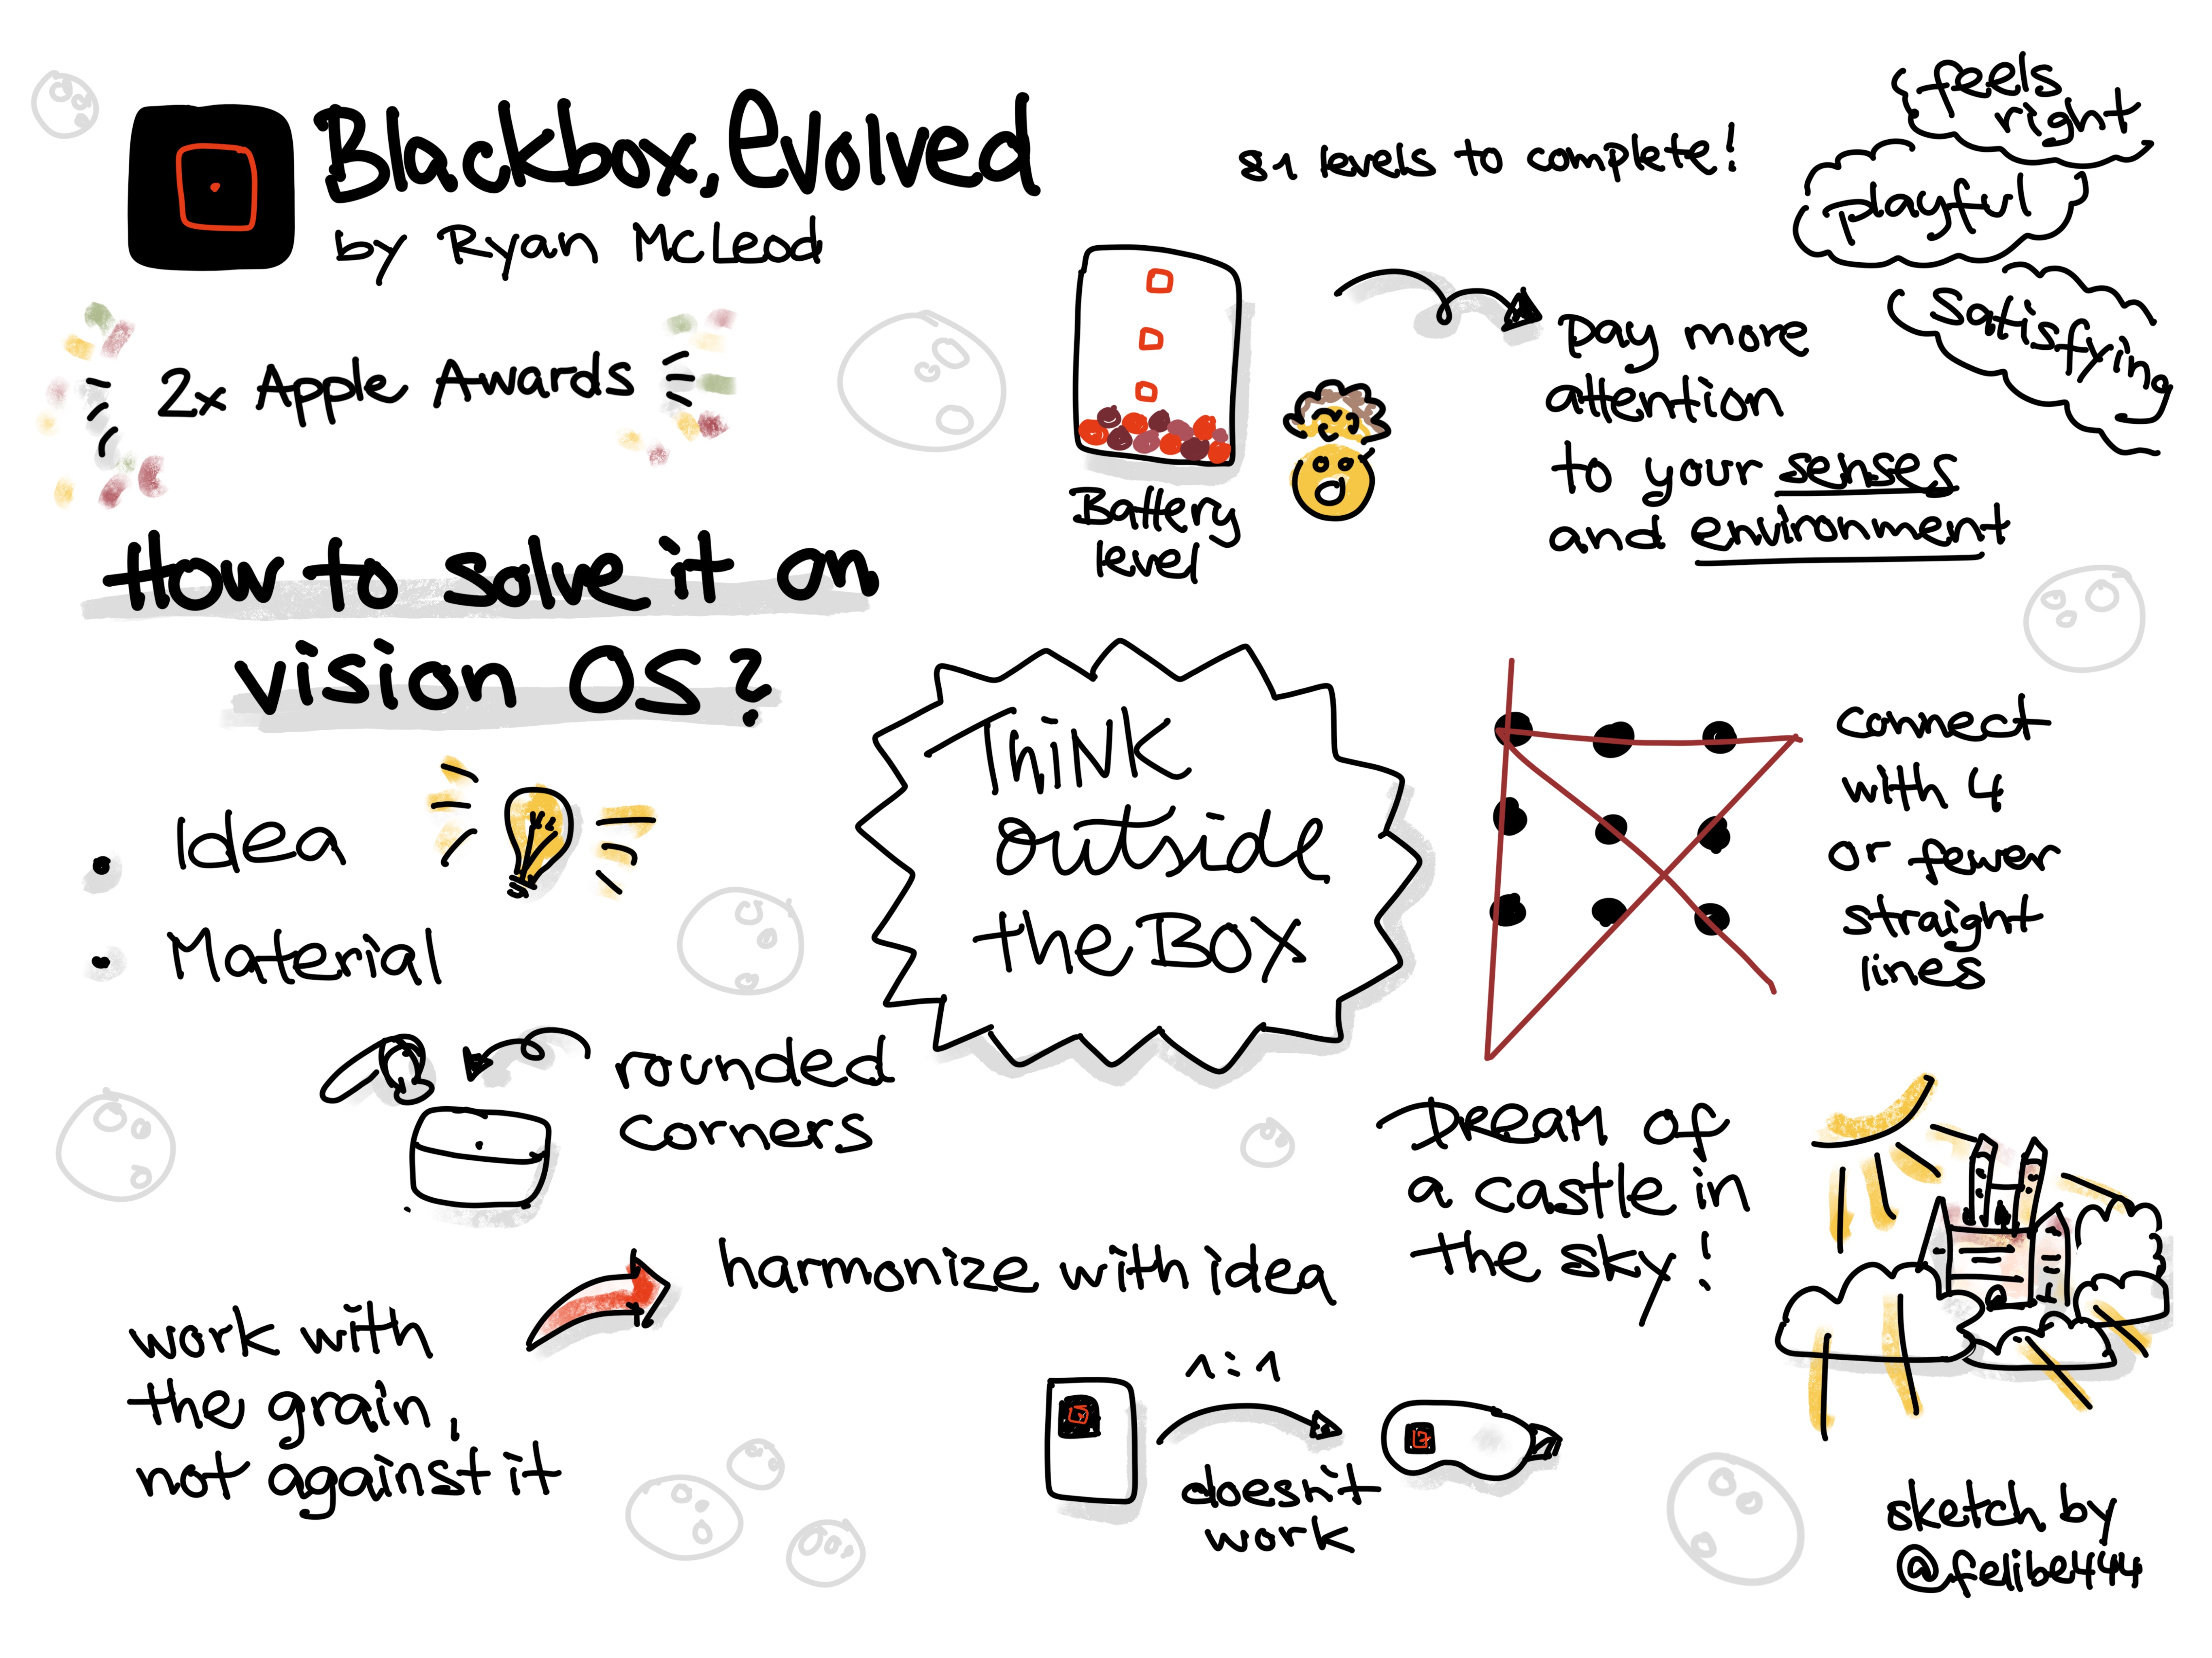 Blackbox, evolved
by Ryan McLeod
2x Apple Awards
81 levels to complete!
feels
right
playful
satisfying
Battery
level
pay more
attention
to your senses
and environment
How to solve it on
vision OS?
• Idea
• Material
rounded
corners
Think
outside
the BOX
connect
with 4
or fewer
straight
lines
Dream of
a castle in
the sky!
work with
the grain,
not against it
harmonize with idea
1:1
doesn't
work
sketch by
@felibe444